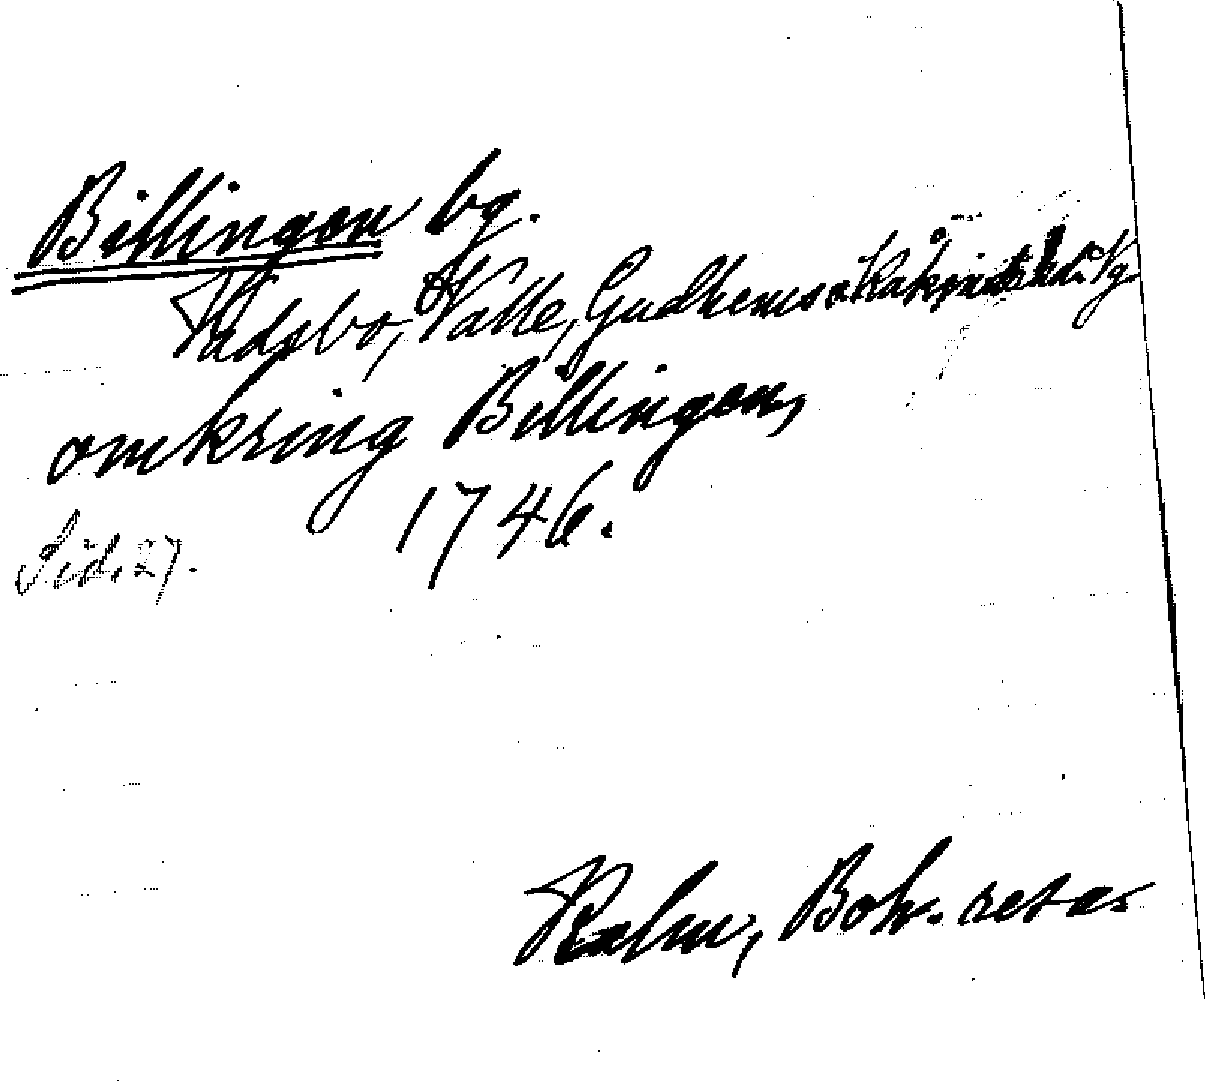 Billingen bg.
Vadsbo, Valle, Gudhems o Kåkinds hd. Vg.
omkring Billingen,
1746.
Sid. 27.
Kalm, Boh. resa.